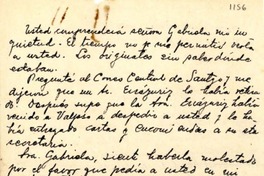 1156
Usted comprenderá señora Gabriela mi in
quietud. El tiempo no me permitió verla
a usted. Los originales sin saber donde
estaban.
Pregunté al Correo Central de Santgo y me
dijeron que un Sr. Errázuriz lo había retira
do. Después supe que la Sra. Errázuriz había
venido a Valpso a despedir a usted y la ha
bía entregado cartas y encomiendas a su
secretaria.
Sra. Gabriela, siento haberla molestado
por el favor que pedía a usted en mi